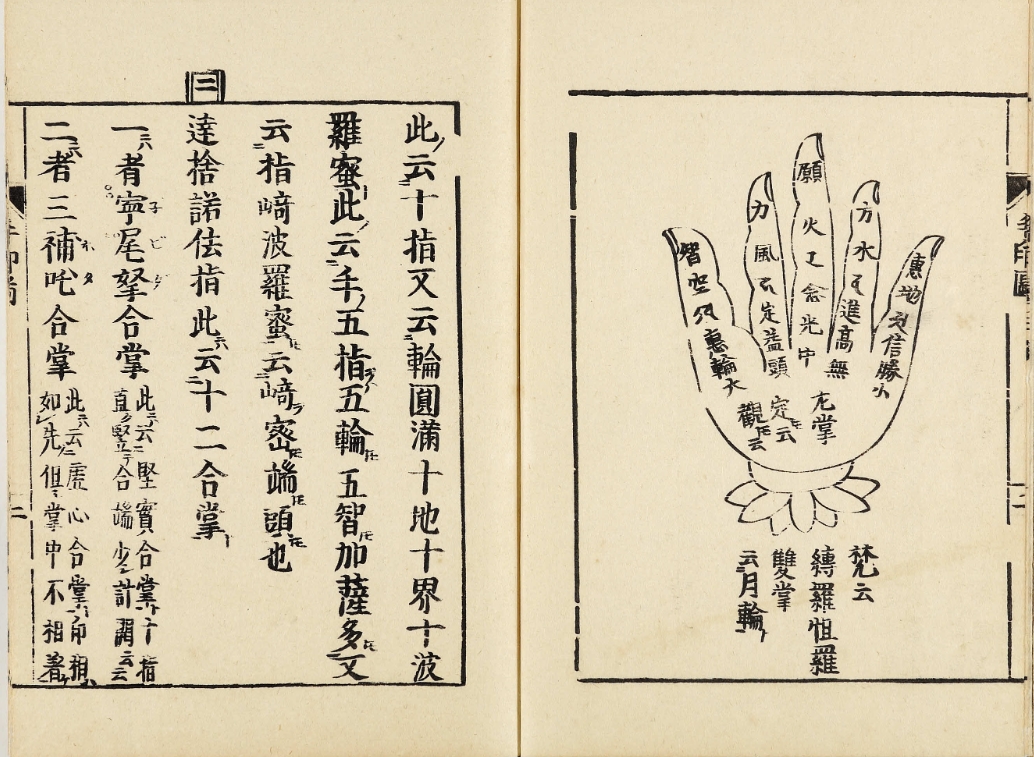 慧地信勝小
方水進高無
願火念光中
力風定蓋頭
智空惠輪大
左掌
定云
觀云
梵云
縛羅怛羅
雙掌
云月輪
三
此云十指又云輪圓滿十地十界十波
羅蜜此云手五指五輪五智加薩多又
云指﨑波羅蜜云﨑密端頭也
達捨諾佉指此云十二合掌
一者寧尾拏合掌
此云堅實合掌十指
直竪合端少計開云云
二者三補吒合掌
此云虛心合掌印相
如先但掌中不相著